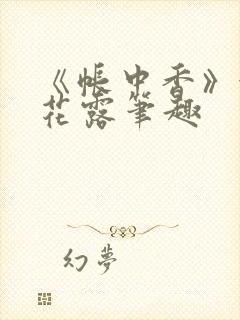 《帐中香》
花露笔趣
幻梦